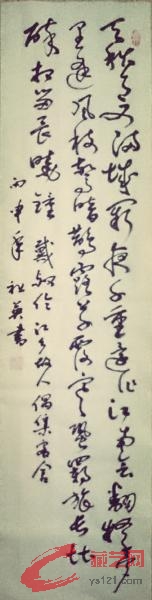 天秋月又满城阙夜千重还作江南会翻疑梦
里逢风枝惊暗鹊露草覆寒蛩羁旅长堪
醉相留畏曉鐘 戴叔伦江乡故人偶集客舍
丙申年 英書
ys121.com